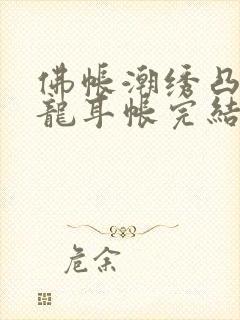 佛帐潮绣凸
龍耳帐完結
危余